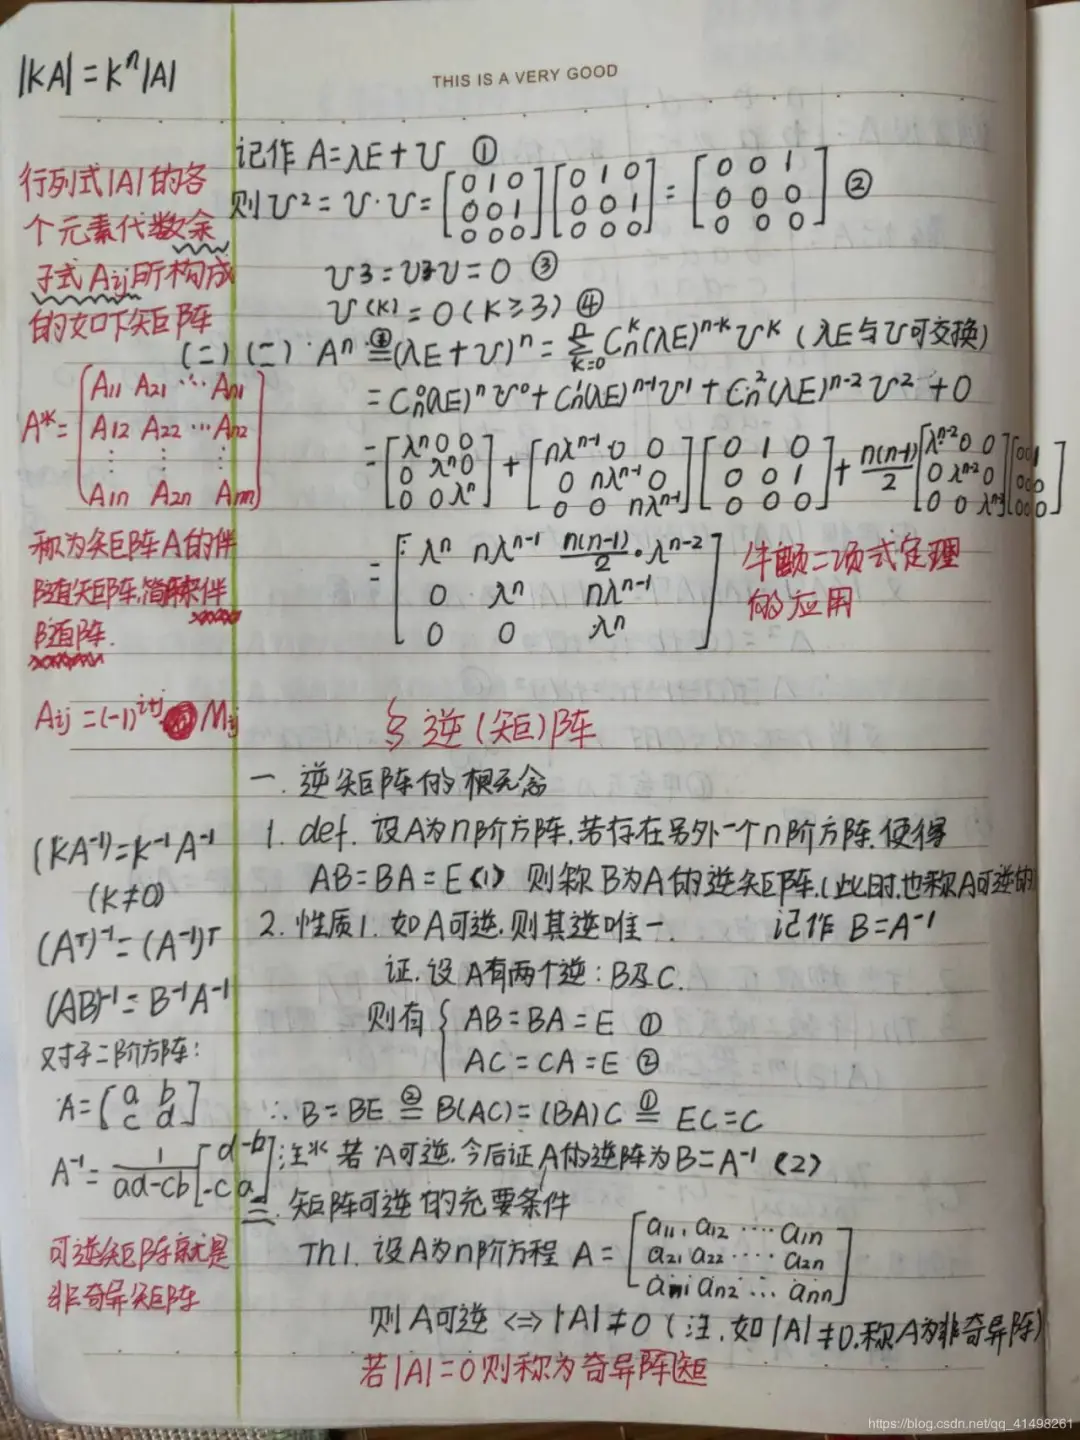 |KA| = Kⁿ|A|
THIS IS A VERY GOOD
行列式|A|的各
个元素代数余
子式Aij所构成
的如下矩阵
A* = [A11 A21 ⋯ An1
A12 A22 ⋯ An2
⋮ ⋮ ⋮
A1n A2n Ann]
称为矩阵A的伴
随矩阵,简称伴
随阵.
Aij = (-1)^{i+j} Mij
(KA⁻¹) = K⁻¹A⁻¹
(K≠0)
(Aᵀ)⁻¹ = (A⁻¹)ᵀ
(AB)⁻¹ = B⁻¹A⁻¹
对于二阶方阵:
A = [a b
c d]
A⁻¹ = 1/(ad-cb) [d -b
-c a]
可逆矩阵就是
非奇异矩阵
记作 A = λE + U ①
则 U² = U·U = [0 1 0; 0 0 1; 0 0 0] [0 1 0; 0 0 1; 0 0 0] = [0 0 1; 0 0 0; 0 0 0] ②
U3 = U²U = 0 ③
U(K) = 0 (K≥3) ④
(二) (二) Aⁿ = (λE + U)ⁿ = Σ_{k=0}^{n} Cₙᵏ(λE)ⁿ⁻ᵏ Uᵏ (λE与U可交换)
= Cₙ⁰(λE)ⁿ U⁰ + Cₙ¹(λE)ⁿ⁻¹U¹ + Cₙ²(λE)ⁿ⁻² U² + 0
= [λⁿ 0 0; 0 λⁿ 0; 0 0 λⁿ] + [nλⁿ⁻¹ 0 0; 0 nλⁿ⁻¹ 0; 0 0 nλⁿ⁻¹] [0 1 0; 0 0 1; 0 0 0] + n(n-1)/2 [λⁿ⁻² 0 0; 0 λⁿ⁻² 0; 0 0 λⁿ⁻²] [0 0 1; 0 0 0; 0 0 0]
= [λⁿ nλⁿ⁻¹ n(n-1)/2·λⁿ⁻²; 0 λⁿ nλⁿ⁻¹; 0 0 λⁿ]
牛顿二项式定理
的应用
§ 逆(矩)阵
一. 逆矩阵的概念
1. def. 设A为n阶方阵,若存在另外一个n阶方阵,使得
AB = BA = E (1) 则称B为A的逆矩阵.(此时,也称A可逆的)
2. 性质1. 如A可逆,则其逆唯一. 记作 B = A⁻¹
证.设A有两个逆: B及C.
则有 { AB = BA = E ①
AC = CA = E ②
∴ B = BE ②= B(AC) = (BA)C ①= EC = C
注* 若A可逆,今后证A的逆阵为B = A⁻¹ (2)
二. 矩阵可逆的充要条件
Th1. 设A为n阶方程 A = [a11, a12 ⋯⋯ a1n
a21 a22 ⋯⋯ a2n
an1 an2 ⋯ ann]
则A可逆 <=> |A| ≠ 0 (注.如|A|≠0.称A为非奇异阵)
若|A| = 0则称为奇异阵矩
https://blog.csdn.net/qq_41498261